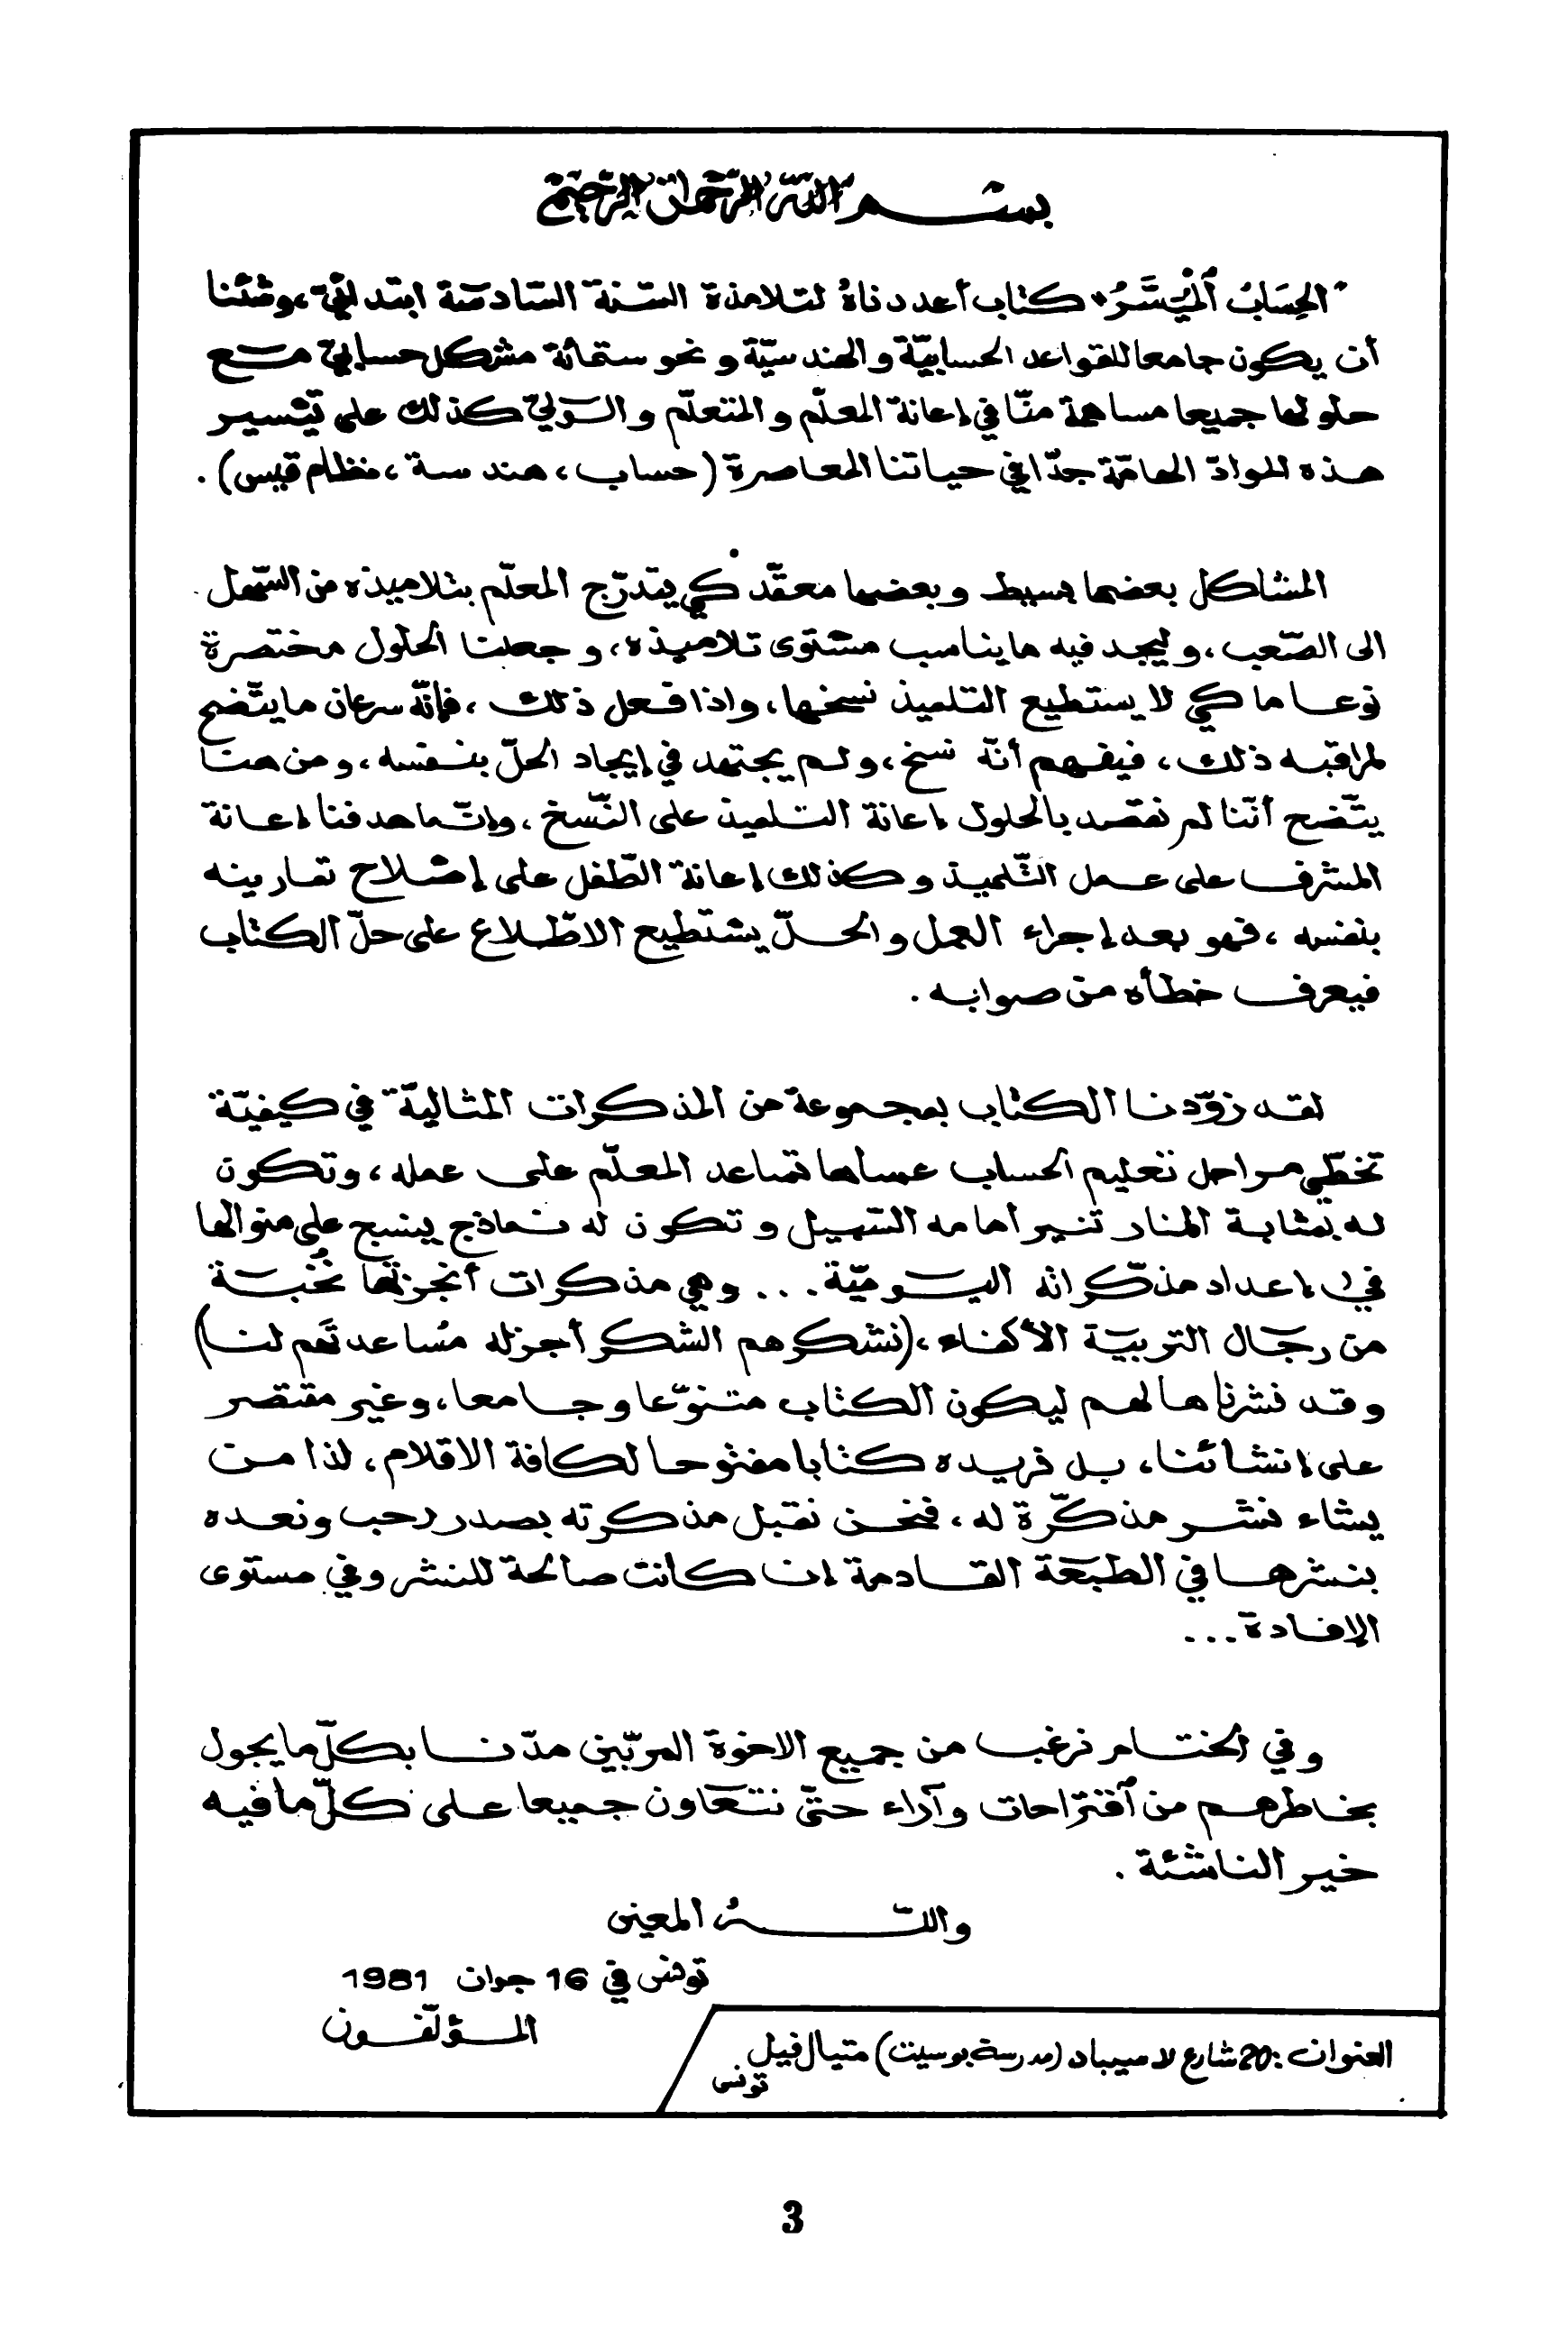 بسم الله الرحمان الرحيم
"الحِسَابُ ٱلْمُيَسَّرُ" كتاب أعددناهُ لتلامذة السّنة السّادسة ابتدائيّ، وشئنا
أن يكون جامعا للقواعد الحسابيّة والهندسيّة ونحو ستمائة مشكل حسابيّ مع
حلولها جميعا مساهمة منّا في إعانة المعلّم والمتعلّم والوليّ كذلك على تيسير
هذه الموادّ الهامّة جدّا في حياتنا المعاصرة (حساب، هندسة، نظام قيس).
المشاكل بعضها بسيط وبعضها معقّد كي يتدرّج المعلّم بتلاميذه من السّهل
الى الصّعب، وليجد فيه ما يناسب مستوى تلاميذه، وجعلنا الحلول مختصرة
نوعا ما كي لا يستطيع التلميذ نسخها، واذا فعل ذلك، فإنّه سرعان ما يتّضح
لمراقبه ذلك، فيفهم أنّه نسخ، ولم يجتهد في إيجاد الحلّ بنفسه، ومن هنا
يتّضح أنّنا لم نقصد بالحلول إعانة التلميذ على النّسخ، وإنّما هدفنا إعانة
المشرف على عمل التّلميذ وكذلك إعانة الطّفل على إصلاح تمارينه
بنفسه، فهو بعد إجراء العمل والحلّ يستطيع الاطّلاع على حلّ الكتاب
فيعرف خطأه من صوابه.
لقد زوّدنا الكتاب بمجموعة من المذكرات المثاليّة في كيفيّة
تخطّي مراحل تعليم الحساب عساها تساعد المعلّم على عمله، وتكون
له بمثابة المنار تنير أمامه السّبيل وتكون له نماذج ينسج على منوالها
في إعداد مذكّراته اليوميّة... وهي مذكرات أنجزتها نُخبة
من رجال التربيّة الأكفاء، (نشكرهم الشكر أجزله مُساعدتهم لنا)
وقد نشرناها لهم ليكون الكتاب متنوّعا وجامعا، وغير مقتصر
على إنشائنا، بل نريده كتابا مفتوحا لكافة الاقلام، لذا من
يشاء نشر مذكّرة له، فنحن نقبل مذكرته بصدر رحب ونعده
بنشرها في الطبعة القادمة إن كانت صالحة للنشر وفي مستوى
الإفادة...
وفي الختام نرغب من جميع الاخوة المربّين مدّنا بكلّ ما يجول
بخاطرهم من ٱقتراحات وآراء حتّى نتعاون جميعا على كلّ ما فيه
خير الناشئة.
واللهُ المعين
تونس في 16 جوان 1981
المؤلّفون
العنوان: 20 شارع لاميبياد (مدرسة بوسيت) متيال فيل
تونس
3